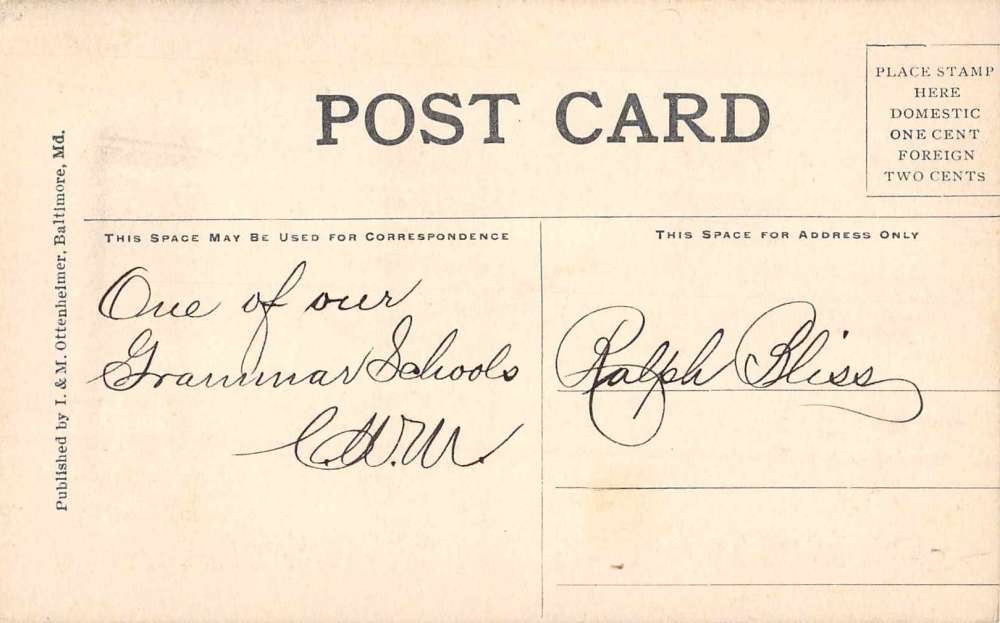 POST CARD
PLACE STAMP
HERE
DOMESTIC
ONE CENT
FOREIGN
TWO CENTS
Published by I. & M. Ottenheimer, Baltimore, Md.
THIS SPACE MAY BE USED FOR CORRESPONDENCE
One of our
Grammar Schools
C.W.M.
THIS SPACE FOR ADDRESS ONLY
Ralph Bliss